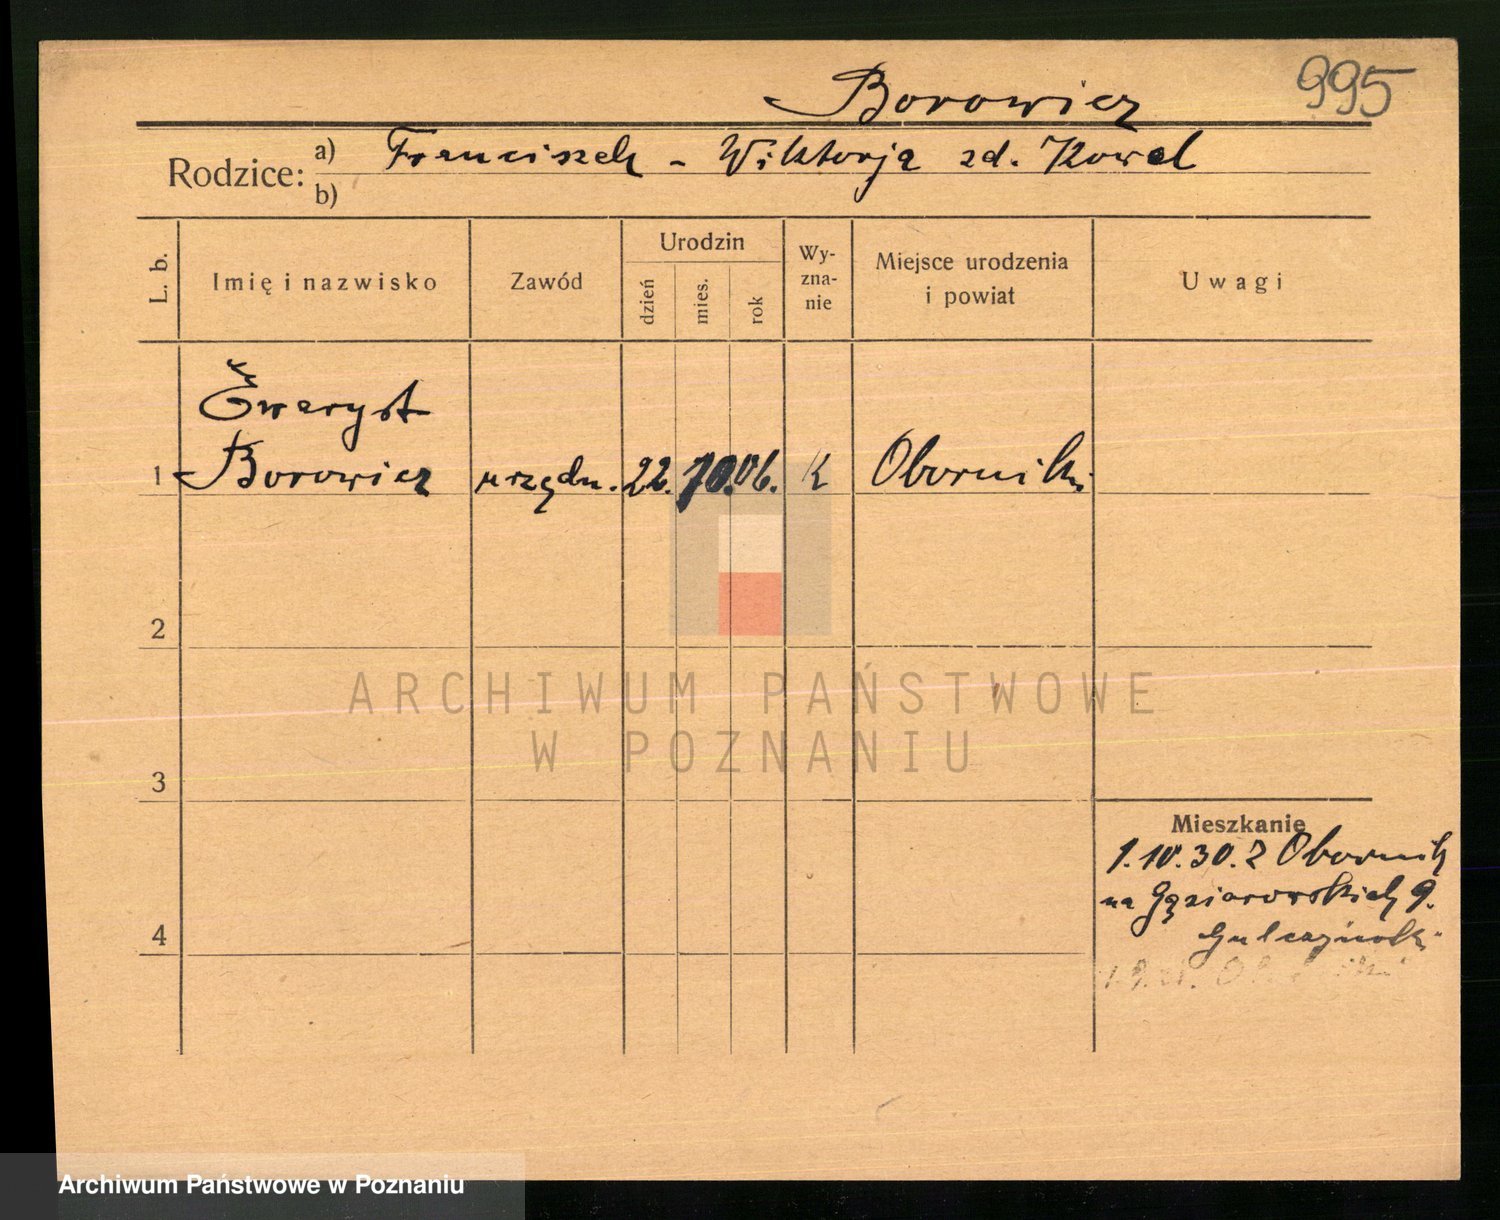 995
Borowicz
Rodzice: a) Franciszek - Wiktorja zd. Kowal
b)
L. b.
Imię i nazwisko
Zawód
Urodzin
dzień
mies.
rok
Wy-
zna-
nie
Miejsce urodzenia
i powiat
Uwagi
Ewaryst
1 Borowicz urzędn. 22. 10. 06. K Oborniki
2
3
4
Mieszkanie
1.10.30. z Obornik
na Gąsiorowskich 9.
ARCHIWUM PAŃSTWOWE
W POZNANIU
Archiwum Państwowe w Poznaniu